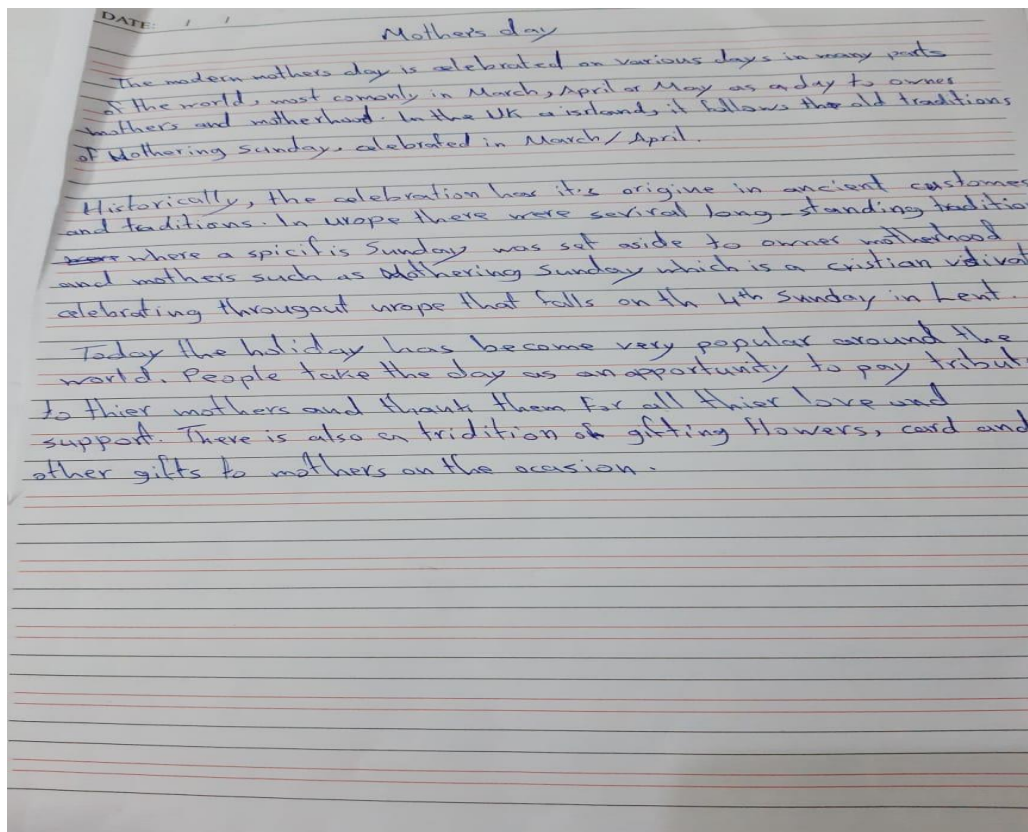 DATE: / /
Mother's day
The modern mothers day is celebrated on various days in many parts
of the world, most comonly in March, April or May as a day to owner
mothers and motherhood. In the UK a island, it follows the old traditions
of Mothering Sunday, celebrated in March/April.
Historically, the celebration has it's origine in ancient customes
and traditions. In urope there were seviral long-standing traditio
where a spicifis Sunday was set aside to owner motherhood
and mothers such as Mothering Sunday which is a cristian
celebrating througout urope that falls on th 4th Sunday in Lent.
Today the holiday has become very popular around the
world. People take the day as an apportunity to pay tribut
to thier mothers and thank them for all thier love and
support. There is also a tridition of gifting flowers, card and
other gifts to mothers on the ocasion.